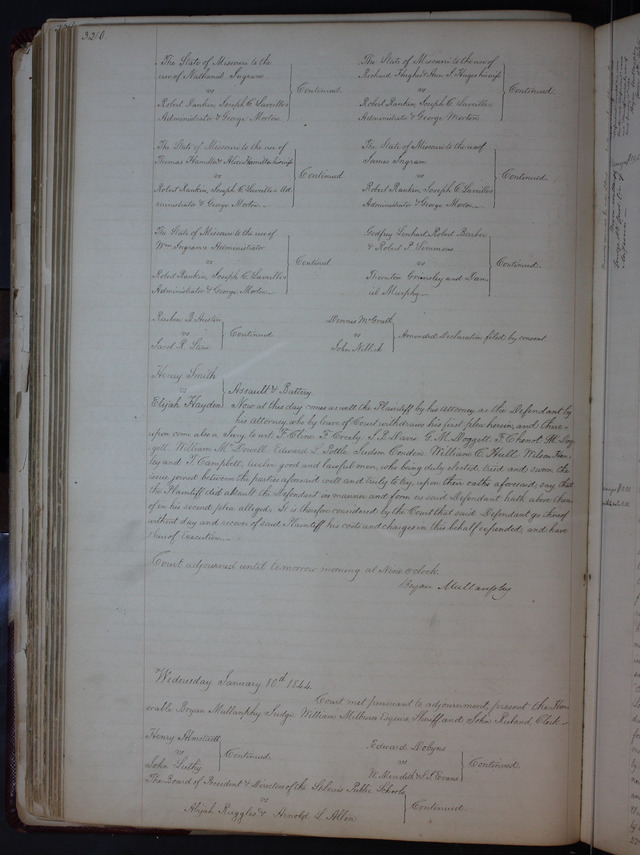 320.
The State of Missouri to the
use of Nathaniel Ingram
vs
Robert Rankin, Joseph C Laveille's
Administrator & George Morton
Continued
The State of Missouri to the use of
Richard Hughes &
vs
Robert Rankin Joseph C Laveilles
Administr & George Morton
Continued
The State of Missouri to the use of
Thomas Hamilton &
vs
Robert Rankin, Joseph C Laveilles Ad
ministrator & George Morton
Continued
The State of Missouri to the use of
James Ingram
vs
Robert Rankin, Joseph C Laveilles
Administrator & George Morton
Continued.
The State of Missouri to the use of
Wm Ingrams Administrator
vs
Robert Rankin, Joseph C Laveilles
Administrator & George Morton
Continued
Godfrey Lenhart Robert Barber
& Robert P. Simmons
vs
Thornton Grimsley and Dan
iel Murphy
Continued.
Reuben B Austin
vs
Continued
Dennis McGrath
vs
John
Amended Declaration filed by consent
Henry Smith
vs
Elijah Hayden
Assault & Battery.
Now at this day comes as well the Plaintiff by his attorney as the Defendant by
his attorney, who by leave of Court withdraws his first plea herein, and there-
upon come also a Jury, to wit, F. Cline F. Crosby. Davis G. M. Doggett. F. Chenot M. Dog
gett. William McDowell. Edward L Pottle Judson Condon. William C. Hull. Wilson
and T. Campbell, twelve good and lawful men, who being duly elected tried and sworn the
issue joined between the parties aforesaid well and truly to try, upon their oaths aforesaid, say that
the Plaintiff did assault the Defendant in manner and form as said Defendant hath above there
of in his second plea alleged. It is therefore considered by the Court that said Defendant go thereof
without day and recover of said Plaintiff his costs and charges in this behalf expended, and have
thereof execution.
Court adjourned until tomorrow morning at Nine o'clock.
Bryan Mullanphy
Wednesday January 10th 1844.
Court met pursuant to adjournment, present the Hon
orable Bryan Mullanphy Judge William Milburn Esquire Sheriff and John Ruland Clerk
Henry Almstedt
vs
John
Continued.
Edward Dobyns
vs
Evans
Continued.
The Board of President & Directors of the St Louis Public Schools
vs
Alijah Ruggles & Arnold L Allen
Continued.